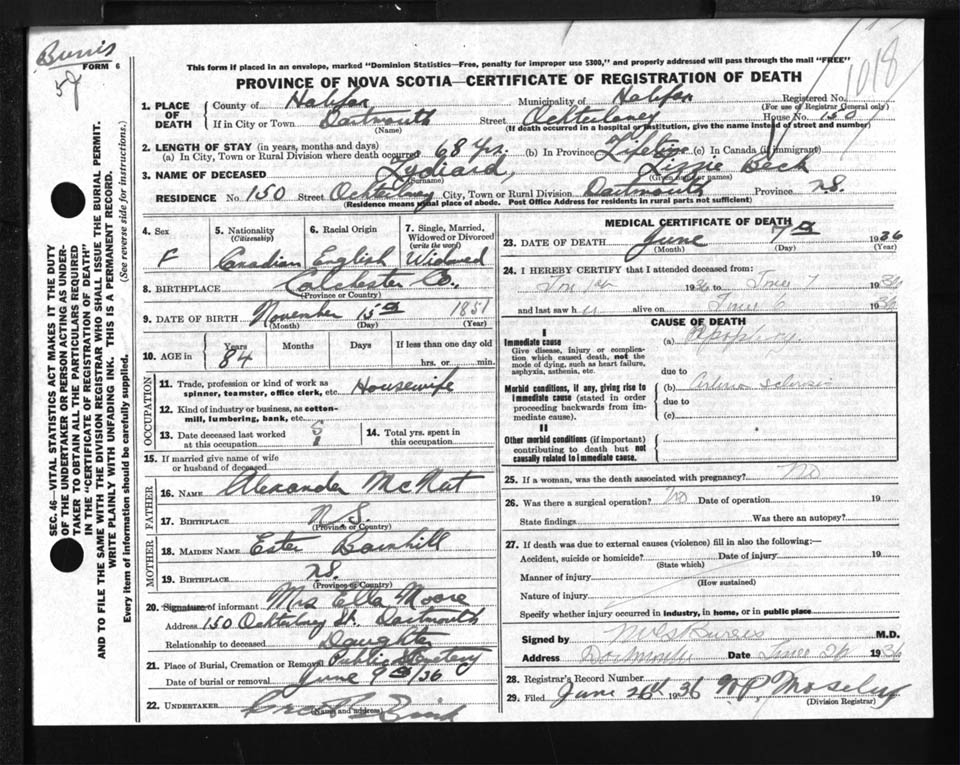 Burris
FORM 6
This form if placed in an envelope, marked "Dominion Statistics—Free, penalty for improper use $300," and properly addressed will pass through the mail "FREE"
PROVINCE OF NOVA SCOTIA—CERTIFICATE OF REGISTRATION OF DEATH
1018
SEC. 46—VITAL STATISTICS ACT MAKES IT THE DUTY
OF THE UNDERTAKER OR PERSON ACTING AS UNDER-
TAKER TO OBTAIN ALL THE PARTICULARS REQUIRED
IN THE "CERTIFICATE OF REGISTRATION OF DEATH"
AND TO FILE THE SAME WITH THE DIVISION REGISTRAR WHO SHALL ISSUE THE BURIAL PERMIT.
WRITE PLAINLY WITH UNFADING INK. THIS IS A PERMANENT RECORD.
Every item of information should be carefully supplied. (See reverse side for instructions.)
1. PLACE OF DEATH County of Halifax Municipality of Halifax Registered No.
(For use of Registrar General only)
If in City or Town Dartmouth Street Ochterloney House No. 150
(Name) (If death occurred in a hospital or institution, give the name instead of street and number)
2. LENGTH OF STAY (in years, months and days)
(a) In City, Town or Rural Division where death occurred 68 yrs. (b) In Province Lifetime (c) In Canada (if immigrant)
3. NAME OF DECEASED Lydiard, Lizzie Beck
(Surname) (Given name or names)
RESIDENCE No. 150 Street Ochterloney City, Town or Rural Division Dartmouth Province N.S.
(Residence means usual place of abode. Post Office Address for residents in rural parts not sufficient)
4. Sex 5. Nationality 6. Racial Origin 7. Single, Married,
(Citizenship) Widowed or Divorced
(write the word)
F Canadian English Widowed
8. BIRTHPLACE Colchester Co.
(Province or Country)
9. DATE OF BIRTH November 15th 1851
(Month) (Day) (Year)
10. AGE in Years Months Days If less than one day old
84 hrs. or min.
OCCUPATION
11. Trade, profession or kind of work as
spinner, teamster, office clerk, etc. Housewife
12. Kind of industry or business, as cotton-
mill, lumbering, bank, etc.
13. Date deceased last worked 14. Total yrs. spent in
at this occupation this occupation
15. If married give name of wife
or husband of deceased
FATHER
16. Name Alexander McNut
17. Birthplace N.S.
(Province or Country)
MOTHER
18. Maiden Name Ester Barnhill
19. Birthplace N.S.
(Province or Country)
20. Signature of informant Mrs Ella Moore
Address 150 Ochterloney St. Dartmouth
Relationship to deceased Daughter
21. Place of Burial, Cremation or Removal Public
Date of burial or removal June 9th /36
22. UNDERTAKER
(Name and address)
MEDICAL CERTIFICATE OF DEATH
23. DATE OF DEATH June 7th 1936
(Month) (Day) (Year)
24. I HEREBY CERTIFY that I attended deceased from:
1936 to June 7 1936
and last saw h alive on June 6 1936
CAUSE OF DEATH
I
Immediate cause (a) Apoplexy
Give disease, injury or complica-
tion which caused death, not the
mode of dying, such as heart failure,
asphyxia, asthenia, etc.
due to
Morbid conditions, if any, giving rise to (b) Arterio sclerosis
immediate cause (stated in order
proceeding backwards from im-
mediate cause).
due to
(c)
II
Other morbid conditions (if important)
contributing to death but not
causally related to immediate cause.
25. If a woman, was the death associated with pregnancy? No
26. Was there a surgical operation? No Date of operation 19
State findings Was there an autopsy?
27. If death was due to external causes (violence) fill in also the following:—
Accident, suicide or homicide? Date of injury 19
(State which)
Manner of injury
(How sustained)
Nature of injury
Specify whether injury occurred in industry, in home, or in public place
Signed by M.D.
Address Dartmouth Date June 26 1936
28. Registrar's Record Number
29. Filed June 26th 1936 W.P. Moseley
(Division Registrar)